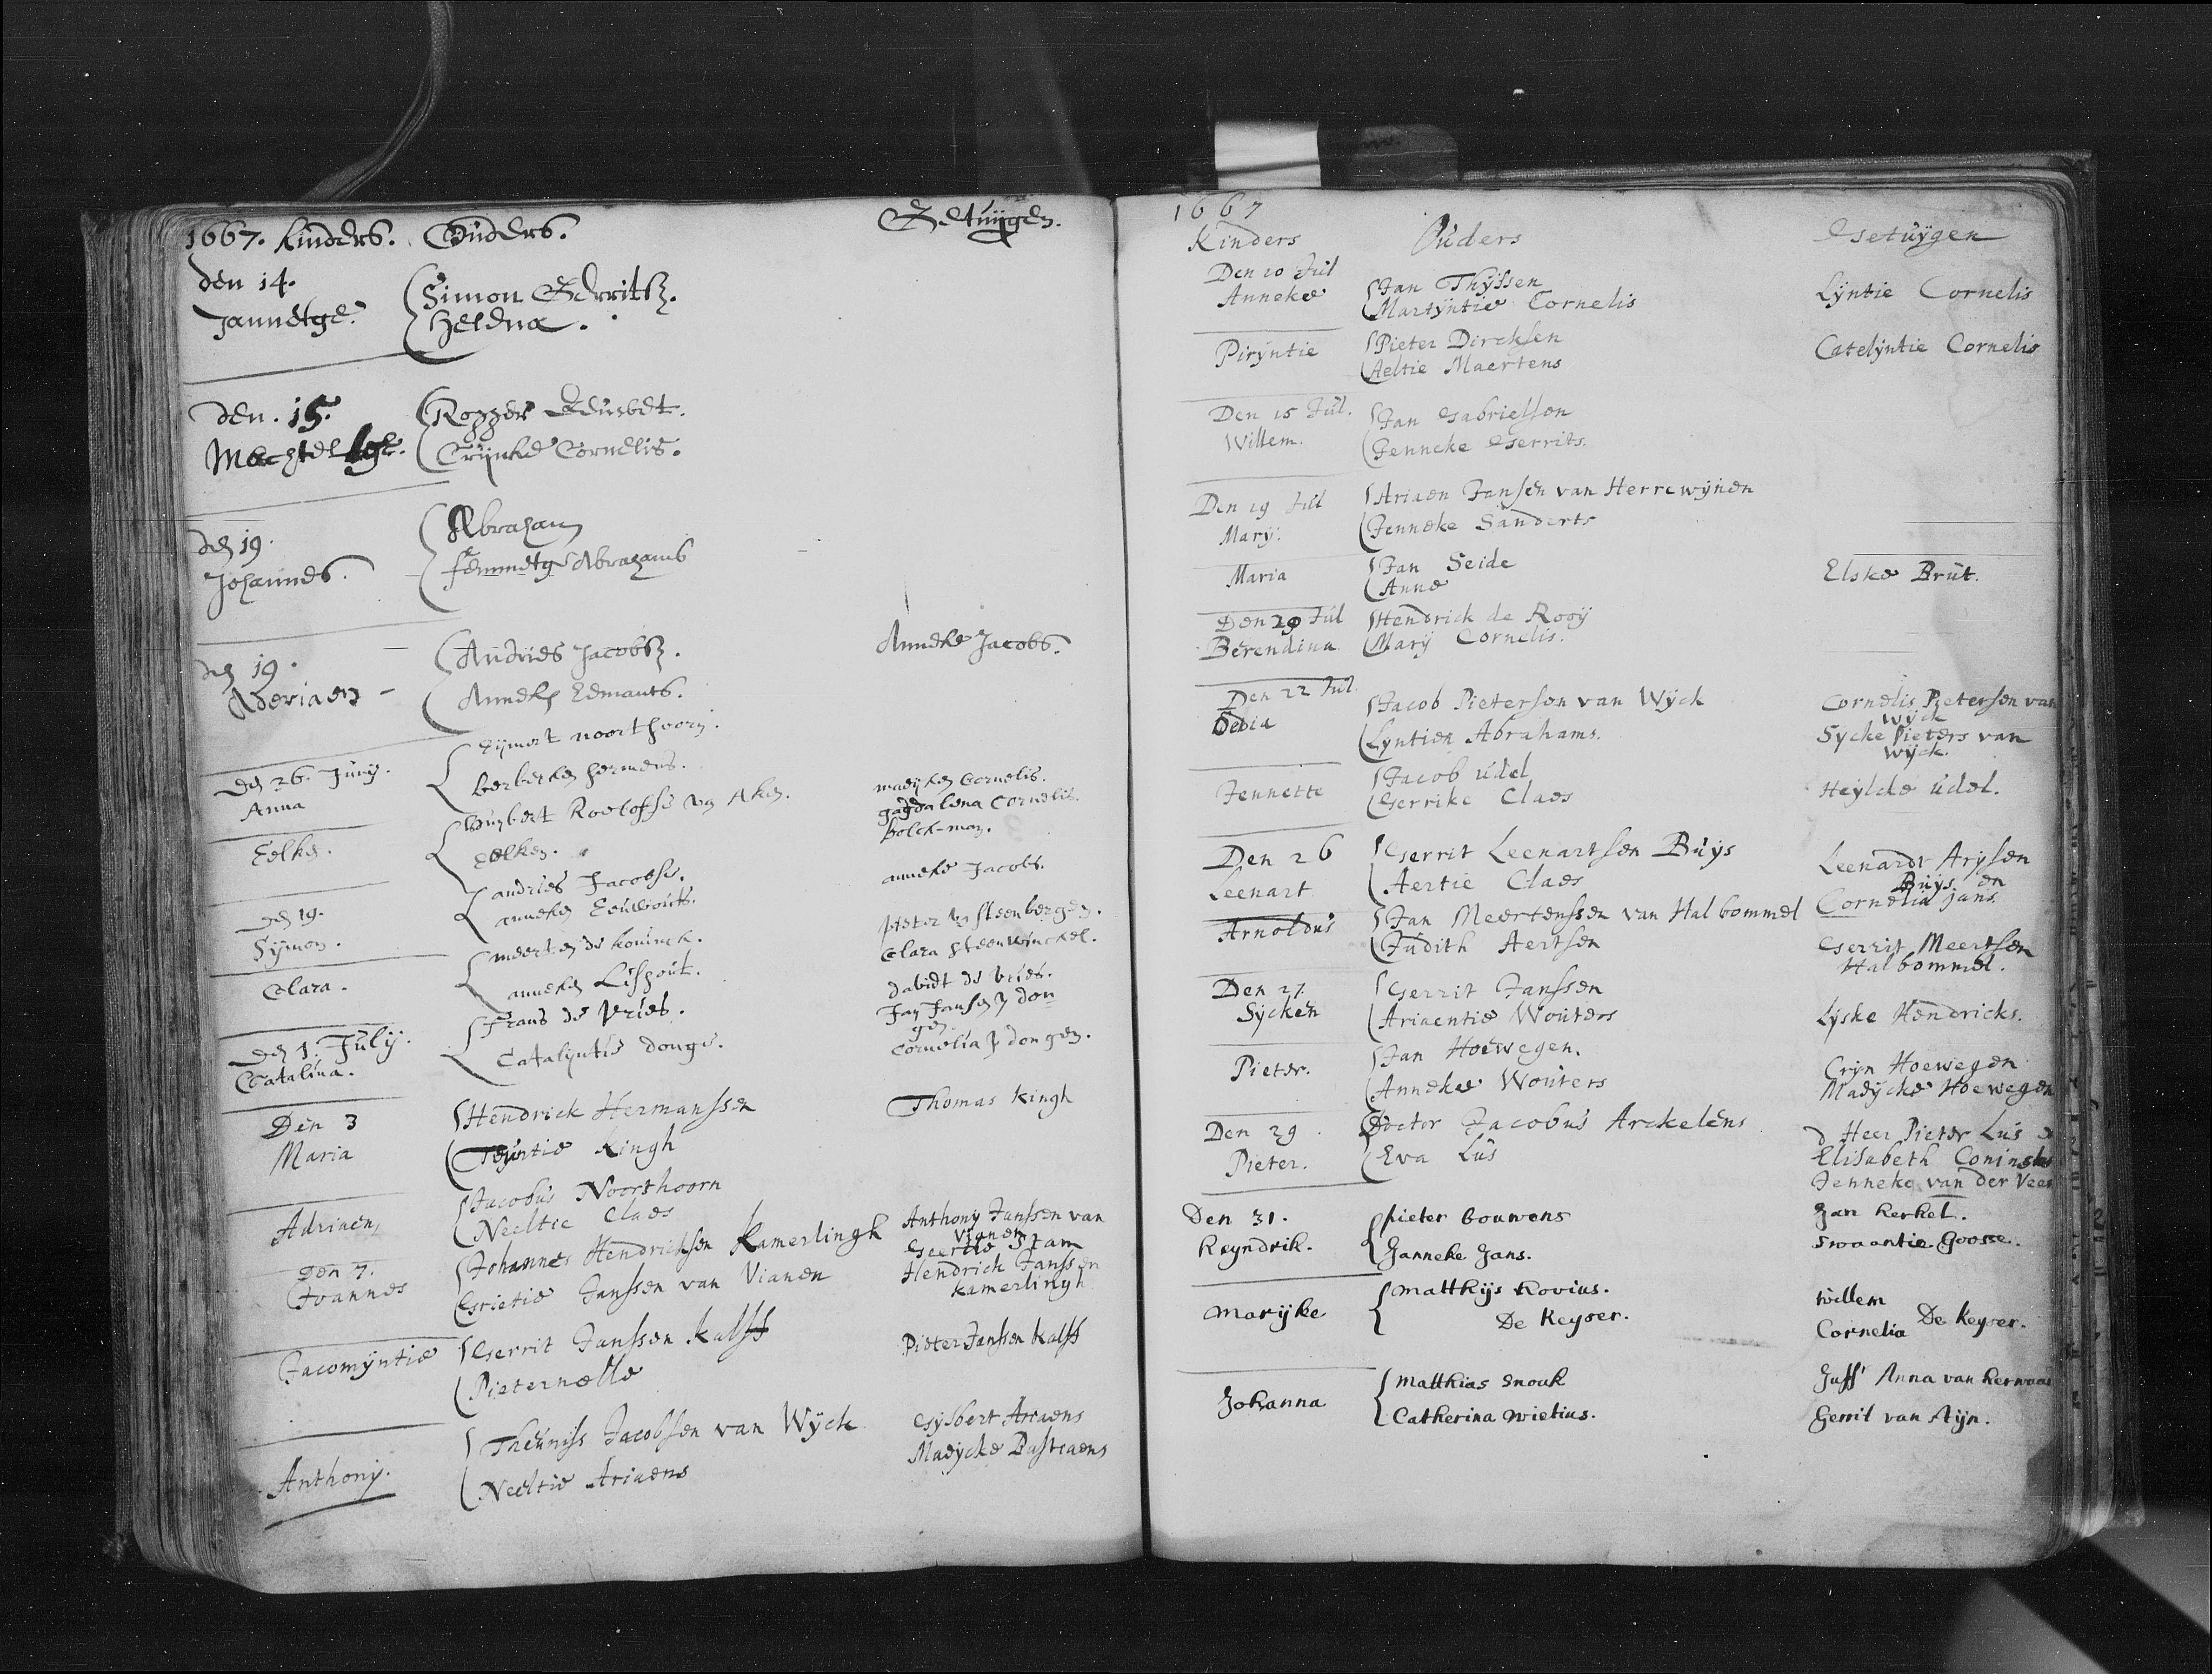 1667. Kinders. Ouders. Getuijgen.
den 14.
Jannetge.
Simon Gerritsz.
Helena.
den. 15.
Mechtel
Rogger
Crijnke Cornelis.
den 19.
Johannes.
Abraham
femmetge Abrahams
den 19.
Aderiaen
Andries Jacobsz.
Anneke Jacobs.
Anneke
den 26. Junij.
Anna
noorthoorn.
hermens.
Eelken.
Huijbert Roeloffse van Aken.
Eelken.
madijken Cornelis.
Cornelis.
bolck-man.
den 19.
Sijmon.
andries Jacobse.
anneken
anneke Jacobs.
Clara.
meerten de koninck.
anneken
pieter van steenbergen.
Clara steenwinckel.
den 1. Julij.
Catalina.
Frans de Vries.
Catalijntie donge.
davidt de vries.
Jan Jansen v don
gen
Cornelia v dongen.
Den 3
Maria
Hendrick Hermanssen
Teuntie Kingh
Thomas Kingh
Adriaen
Jacobus Noorthoorn
Neeltie Claes
den 7.
Joannes
Johannes Hendricksen Kamerlingh
Grietie Janssen van Vianen
Anthony Janssen van
Vianen
Geertie Stam
Hendrick Janssen
Kamerlingh
Jacomijntie
Gerrit Janssen Kalff
Pieternelle
Pieter Janssen Kalff
Anthonij.
Theuniss Jacobsen van Wijck
Neeltie Ariaens
Gijsbert Ariaens
Madijcke Bastiaens
1667
Kinders Ouders Getuijgen
Den 10 Jul
Anneke
Jan Thijssen
Martijntie Cornelis
Lijntie Cornelis
Pirijntie
Pieter Dircksen
Aeltie Maertens
Catelijntie Cornelis
Den 15 Jul.
Willem.
Jan Gabrielsen
Jenneke Gerrits.
Den 19 Jul
Marij.
Ariaen Jansen van Herrewijnen
Jenneke Sanderts
Maria
Jan Seide
Anne
Elske Brut.
Den 29 Jul
Berendina
Hendrick de Rooij
Marij Cornelis.
Den 22 Jul.
Jacob Pietersen van Wijck
Lijntien Abrahams.
Cornelis Pietersen van
Wijck
Sijcke Pieters van
Wijck.
Jennette
Jacob Udel
Gerrike Claes
Heijlcke Udel.
Den 26
Leenart
Gerrit Leenartsen Buijs
Aertie Claes
Leenardt Arijsen
Buijs en
Cornelia Jans.
Arnoldus
Jan Meertenssen van Halbommel
Judith Aertsen
Gerrit Meertsen
Halbommel.
Den 27.
Sijcken
Gerrit Janssen
Ariaentie Wouters
Lijske Hendricks.
Pieter.
Jan Hoewegen.
Anneke Wouters
Crijn Hoewegen
Madijcke Hoewegen
Den 29.
Pieter.
Doctor Jacobus Arckelens
Eva Lus
d Heer Pieter Lus
Elisabeth
Jenneke van der Veer
Den 31.
Reyndrik.
pieter bouwens
Janneke Jans.
Jan kerkel.
Swaantie Goosse.
Marijke
Matthijs Rovius.
De Keyser.
Willem
Cornelia De Keyser.
Johanna
Matthias Snouk
Catherina Wielius.
Juffr Anna van
Gerrit van Rijn.